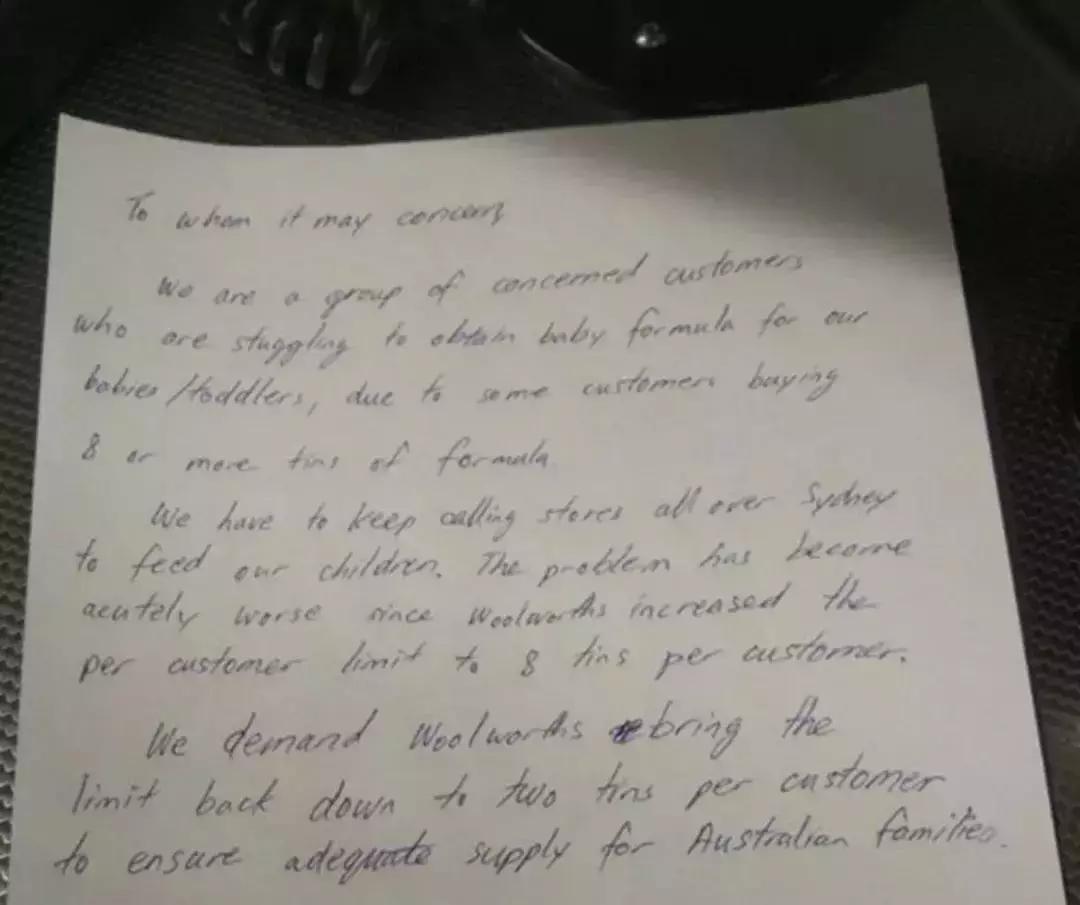 To whom it may concern,
We are a group of concerned customers
who are stuggling to obtain baby formula for our
babies/toddlers, due to some customers buying
8 or more tins of formula
We have to keep calling stores all over Sydney
to feed our children. The problem has become
acutely worse since Woolworths increased the
per customer limit to 8 tins per customer.
We demand Woolworths bring the
limit back down to two tins per customer
to ensure adequate supply for Australian families.